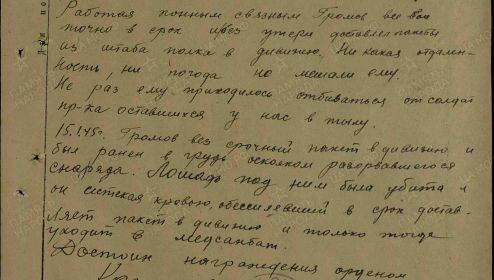 Работая конным связным Громов все
точно в срок и без утери доставлял пакеты
из штаба полка в дивизию. Ни какая отдален-
ность, ни погода не мешали ему.
Не раз ему приходилось отбиваться от солдат
пр-ка оставшихся у нас в тылу.
15.1.45г. Громов вез срочный пакет в дивизию и
был ранен в грудь осколком разорвавшегося
снаряда. Лошадь под ним была убита и
он истекая кровью, обессилевший в срок достав-
ляет пакет в дивизию и только тогда
уходит в Медсанбат.
Достоин награждения орденом